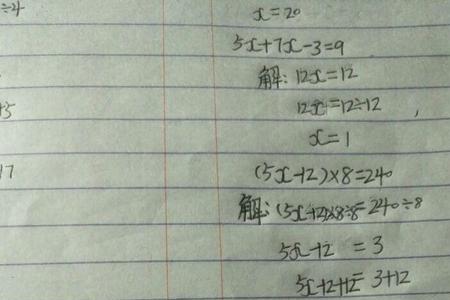 ÷4
x=20
5x+7x-3=9
解: 12x=12
12x=12÷12
x=1
(5x-12)×8=240
解: (5x-12)×8÷8=240÷8
5x-12 =3
5x-12+12=3+12